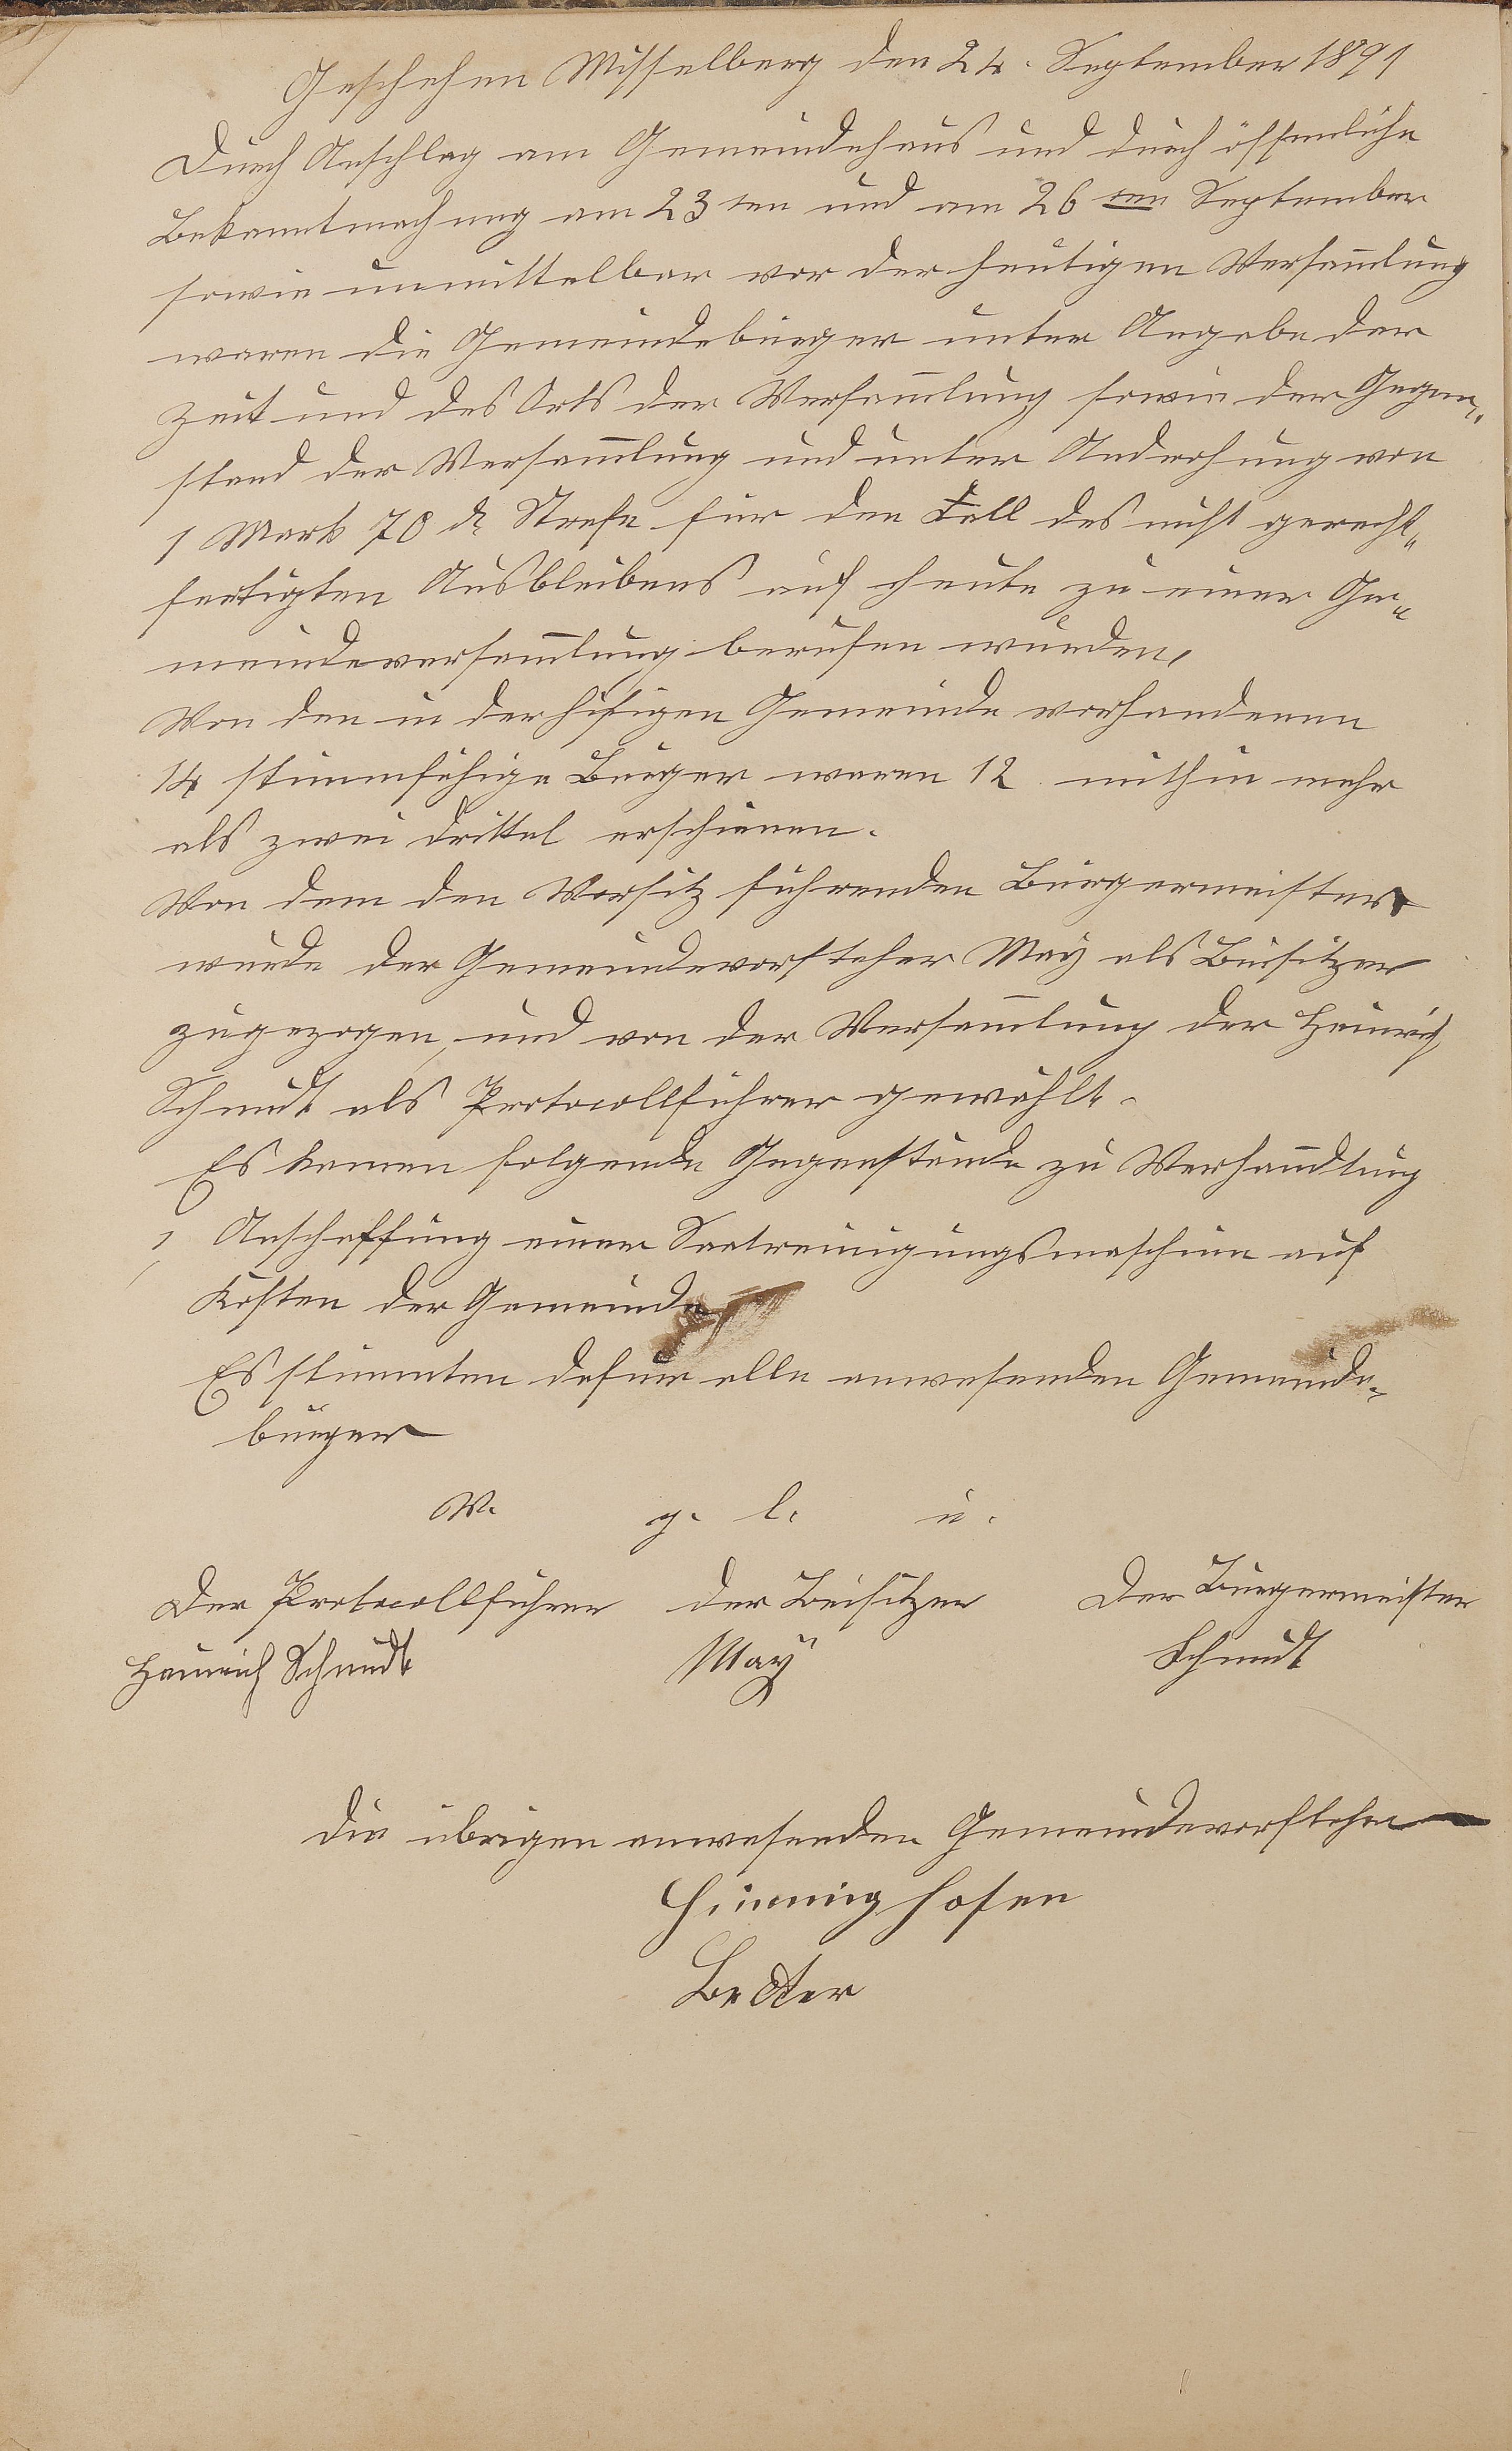 Geschehen Misselberg den 24. September 1891
Durch Anschlag am Gemeindehaus und durch öffenliche
Bekanntmachung am 23ten und am 26ten September
sowie unmittelbar vor der heutigen Versam̄lung
waren die Gemeindebürger unter Angabe der
Zeit und des Orts der Versam̄lung sowie der Gegen„
stand der Versam̄lung und unter Androhung von
1 Mark 70 ₰ Strafe für den Fall des nicht gerecht„
fertigten Ausbleibens auf heute zu einer Ge„
meindeversam̄lung berufen wurden,
Von den in der hisigen Gemeinde vorhandenen
14 stimmfähige Bürger waren 12 mithin mehr
als zwei drittel erschienen.
Von dem den Vorsitz führenden Bürgermeister
wurde der Gemeindevorsteher May als Beisitzer
zugezogen, und von der Versam̄lung der Heinrich
Schmidt als Protocollführer gewählt.
Es kamen folgende Gegenstände zu Verhan̄dlung
1, Anschaffung einer Saatreinigungsmaschine auf
Kosten der Gemeinde
Es stimmten dafür alle anwesenden Gemeinde„
bürger
V. g. l. u.
Der Protocollführer der Beisitzer Der Bürgermeister
Heinrich Schmidt May Schmidt
Die übrigen anwesenden Gemeindevorsteher
Himmighofen
Becker